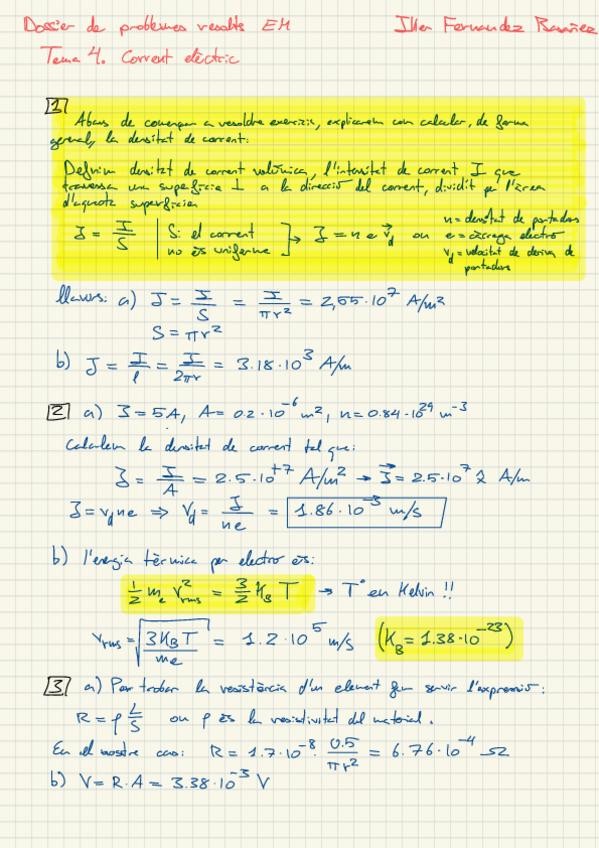 Dossier de problemes resolts EM
Iker Fernandez
Tema 4. Corrent elèctric
1
Abans de començar a resoldre exercicis, explicarem com calcular, de forma
general, la densitat de corrent:
Definim densitat de corrent volúmica, l'intensitat de corrent I que
travessa una superfície ⊥ a la direcció del corrent, dividit per l'àrea
d'aquesta superfície
J = I/S | Si el corrent no és uniforme ] → J = n e v⃗_d on
n = densitat de portadors
e = càrrega electro
v_d = velocitat de deriva de
portadors
llavors: a) J = I/S = I/πr² = 2,65·10⁷ A/m²
S = πr²
b) J = I/l = I/2πr = 3.18·10³ A/m
2 a) I = 5A, A = 0.2·10⁻⁶ m², n = 0.84·10²⁹ m⁻³
Calculem la densitat de corrent tal que:
J = I/A = 2.5·10⁺⁷ A/m² → J⃗ = 2.5·10⁷ x̂ A/m
J = v_d n e ⇒ v_d = J/ne = 1.86·10⁻³ m/s
b) l'energia tèrmica per electro és:
½ m_e v²_rms = 3/2 k_B T → Tª en Kelvin !!
v_rms = √(3K_BT/m_e) = 1.2·10⁵ m/s (K_B = 1.38·10⁻²³)
3 a) Per trobar la resistència d'un element fem servir l'expressió:
R = ρ L/S on ρ és la resistivitat del material.
En el nostre cas: R = 1.7·10⁻⁸ · 0.5/πr² = 6.76·10⁻⁴ Ω
b) V = R·A = 3.38·10⁻³ V